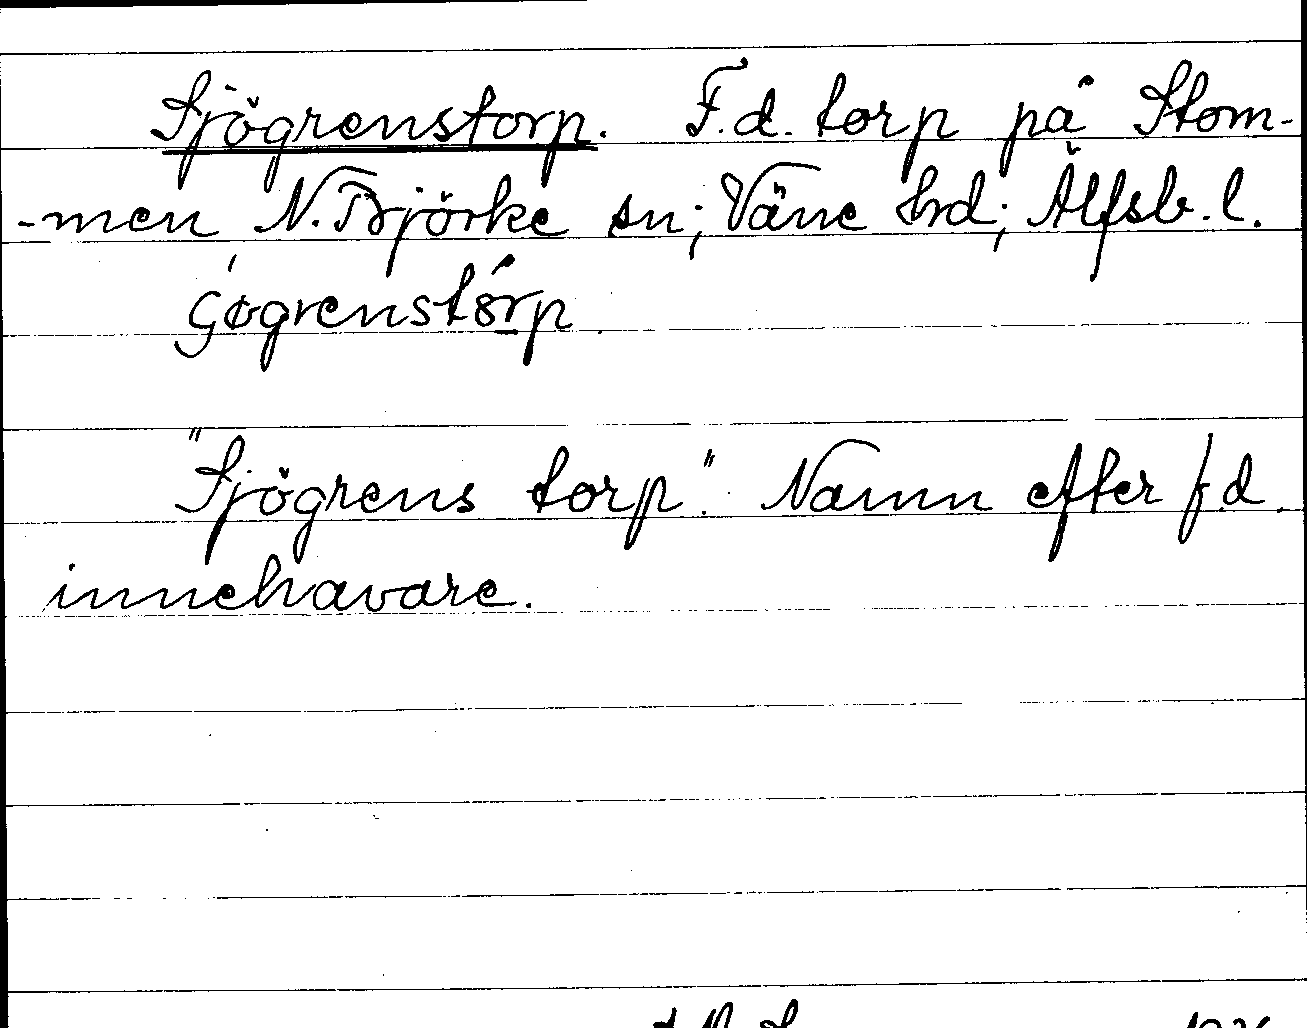 Sjögrenstorp. F.d. torp på Stom-
-men, N. Björke sn; Väne hrd; Älfsb. l.
"Sjögrens torp". Namn efter f.d.
innehavare.